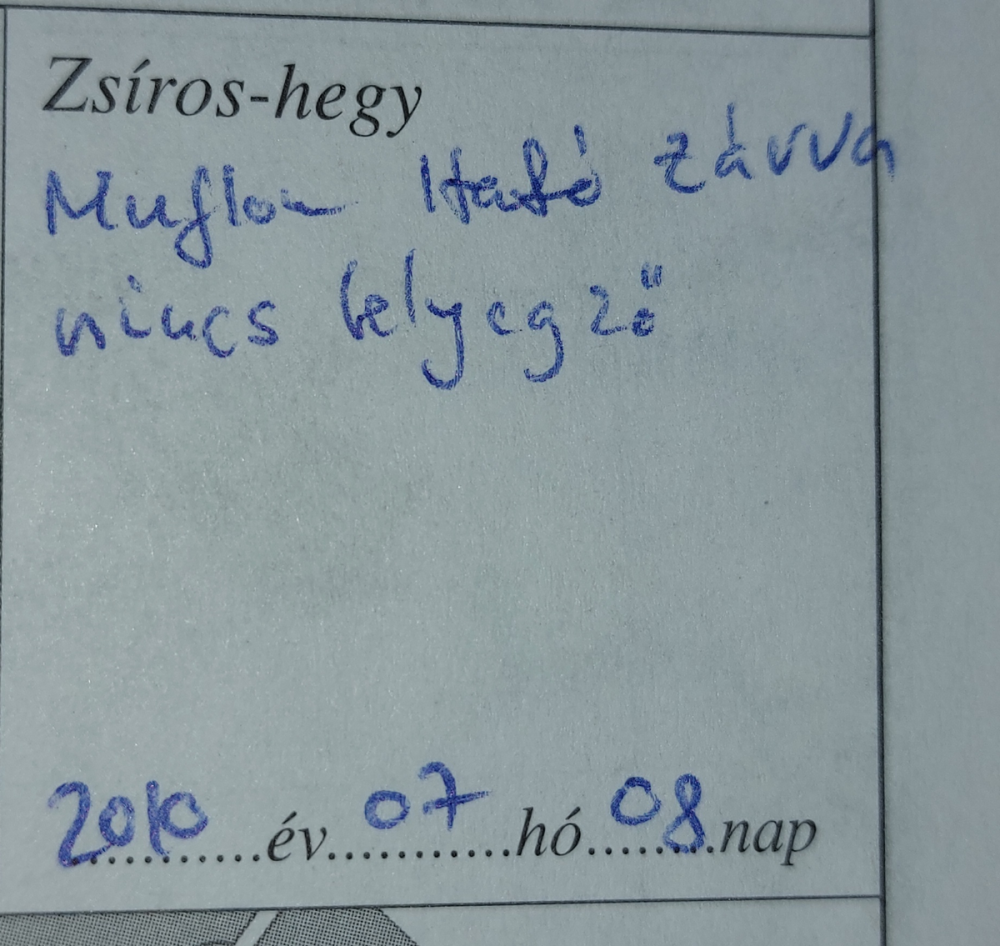 Zsíros-hegy
Muflon Itató zárva
nincs bélyegző
2010 év 07 hó 08 nap